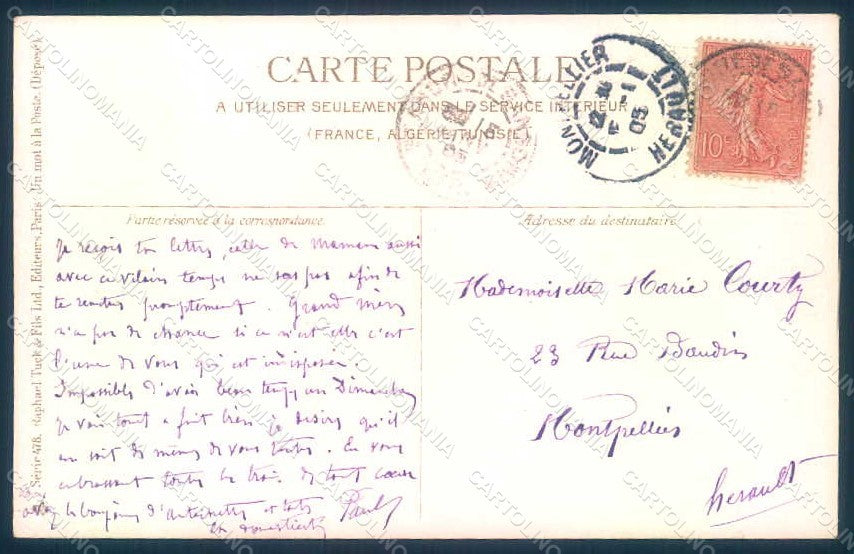 CARTE POSTALE
A UTILISER SEULEMENT DANS LE SERVICE INTÉRIEUR
(FRANCE, ALGÉRIE, TUNISIE)
MONTPELLIER
HERAULT
05
10c
Série 478. Raphael Tuck & Fils Ltd., Editeurs, Paris. Un mot à la Poste. (Déposé)
Partie réservée à la correspondance.
Je reçois ta lettre, celle de Maman aussi
avec ce vilain temps ne sors pas afin de
te remettre promptement. Grand mère
n'a pas de chance si ce n'est elle c'est
l'une de vous qui est indisposée.
Impossible d'avoir beau temps un Dimanche
Je vais tout a fait bien je désire qu'il
en soit de même de vous toutes. En vous
embrassant toutes les trois de tout cœur
le bonjour d'
Paul
Adresse du destinataire
Mademoiselle Marie Courty
23 Rue Baudin
Montpellier
Herault
CARTOLINOMANIA